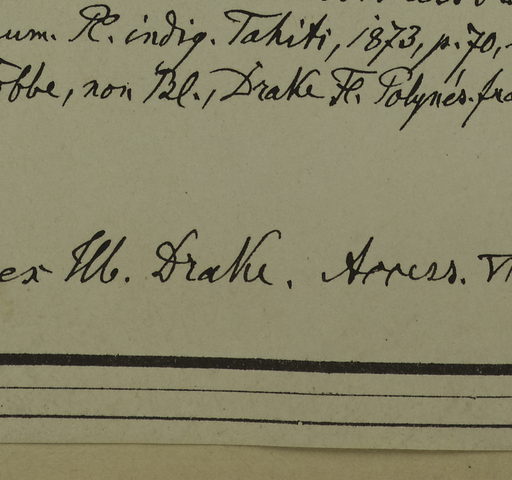 um. Pl. indig. Tahiti, 1873, p. 70,
obbe, non Bl., Drake Fl. Polynés. fra
ex Hb. Drake. Access. VI